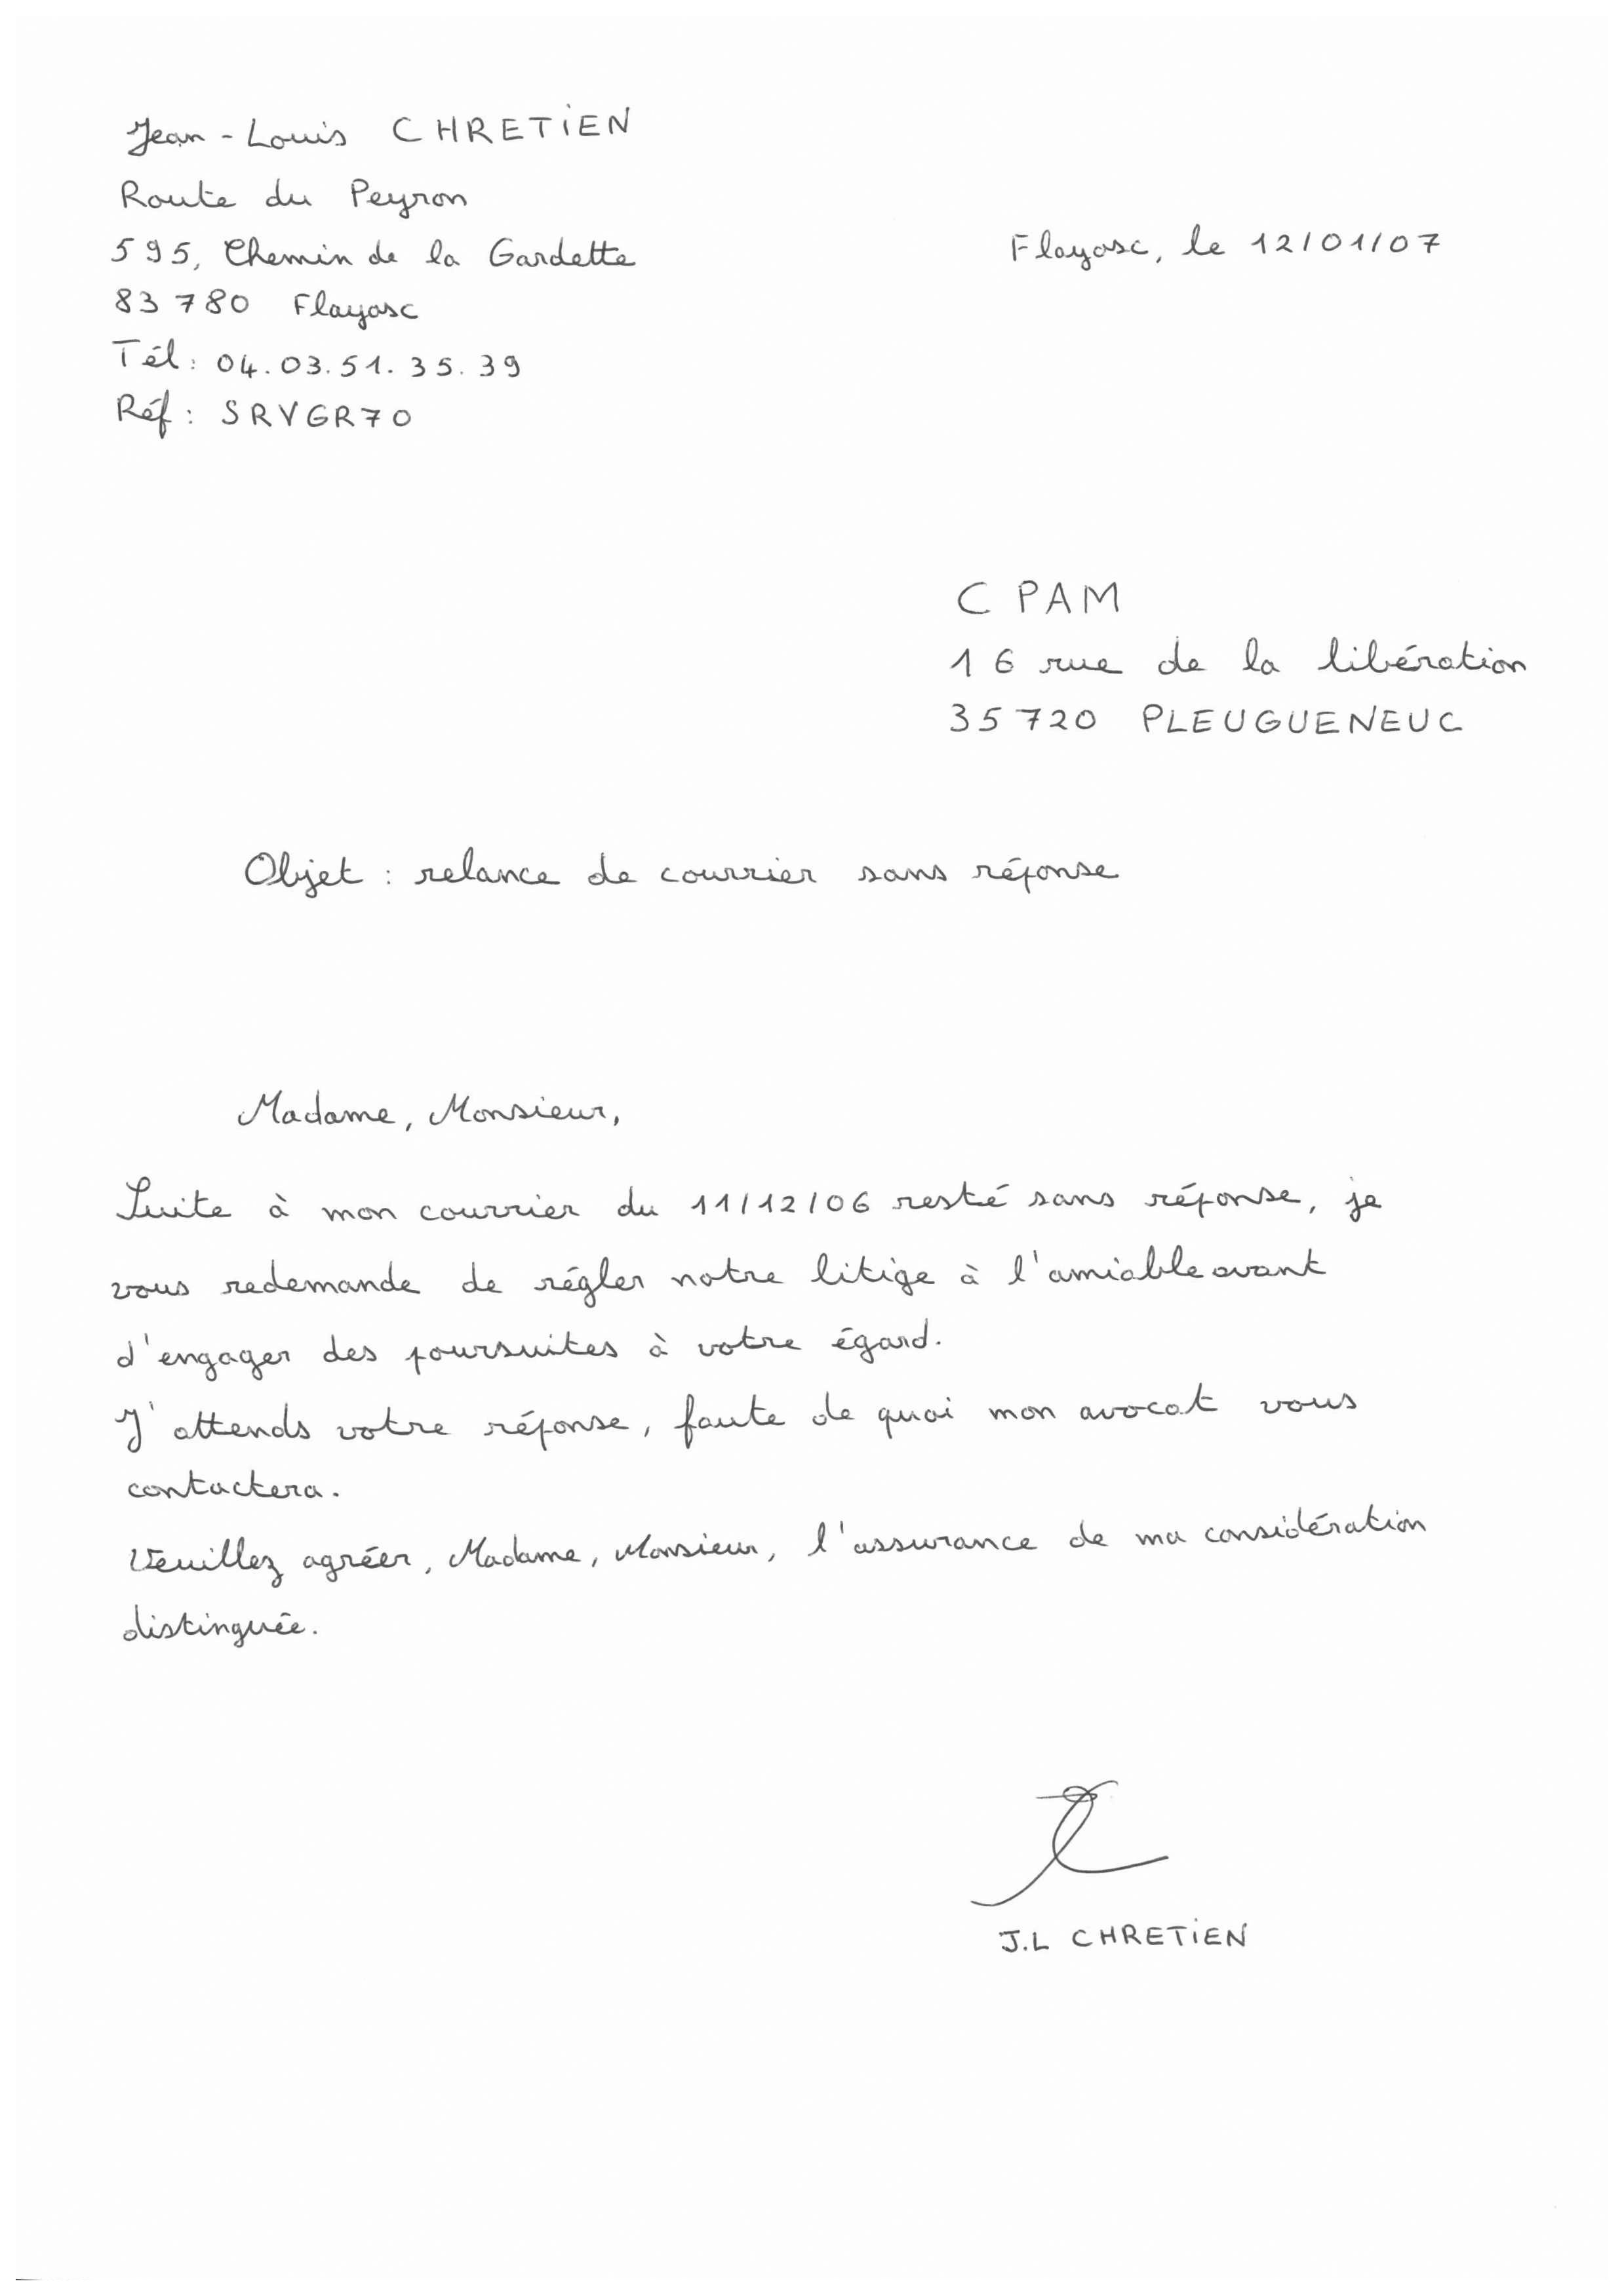 Jean-Louis CHRETIEN
Route du Peyron
595, Chemin de la Gardette
Flayosc, le 12/01/07
83780 Flayosc
Tél: 04.03.51.35.39
Réf: SRVGR70
CPAM
16 rue de la libération
35720 PLEUGUENEUC
Objet : relance de courrier sans réponse
Madame, Monsieur,
Suite à mon courrier du 11/12/06 resté sans réponse, je
vous redemande de régler notre litige à l'amiable avant
d'engager des poursuites à votre égard.
J'attends votre réponse, faute de quoi mon avocat vous
contactera.
Veuillez agréer, Madame, Monsieur, l'assurance de ma considération
distinguée.
J.L CHRETIEN